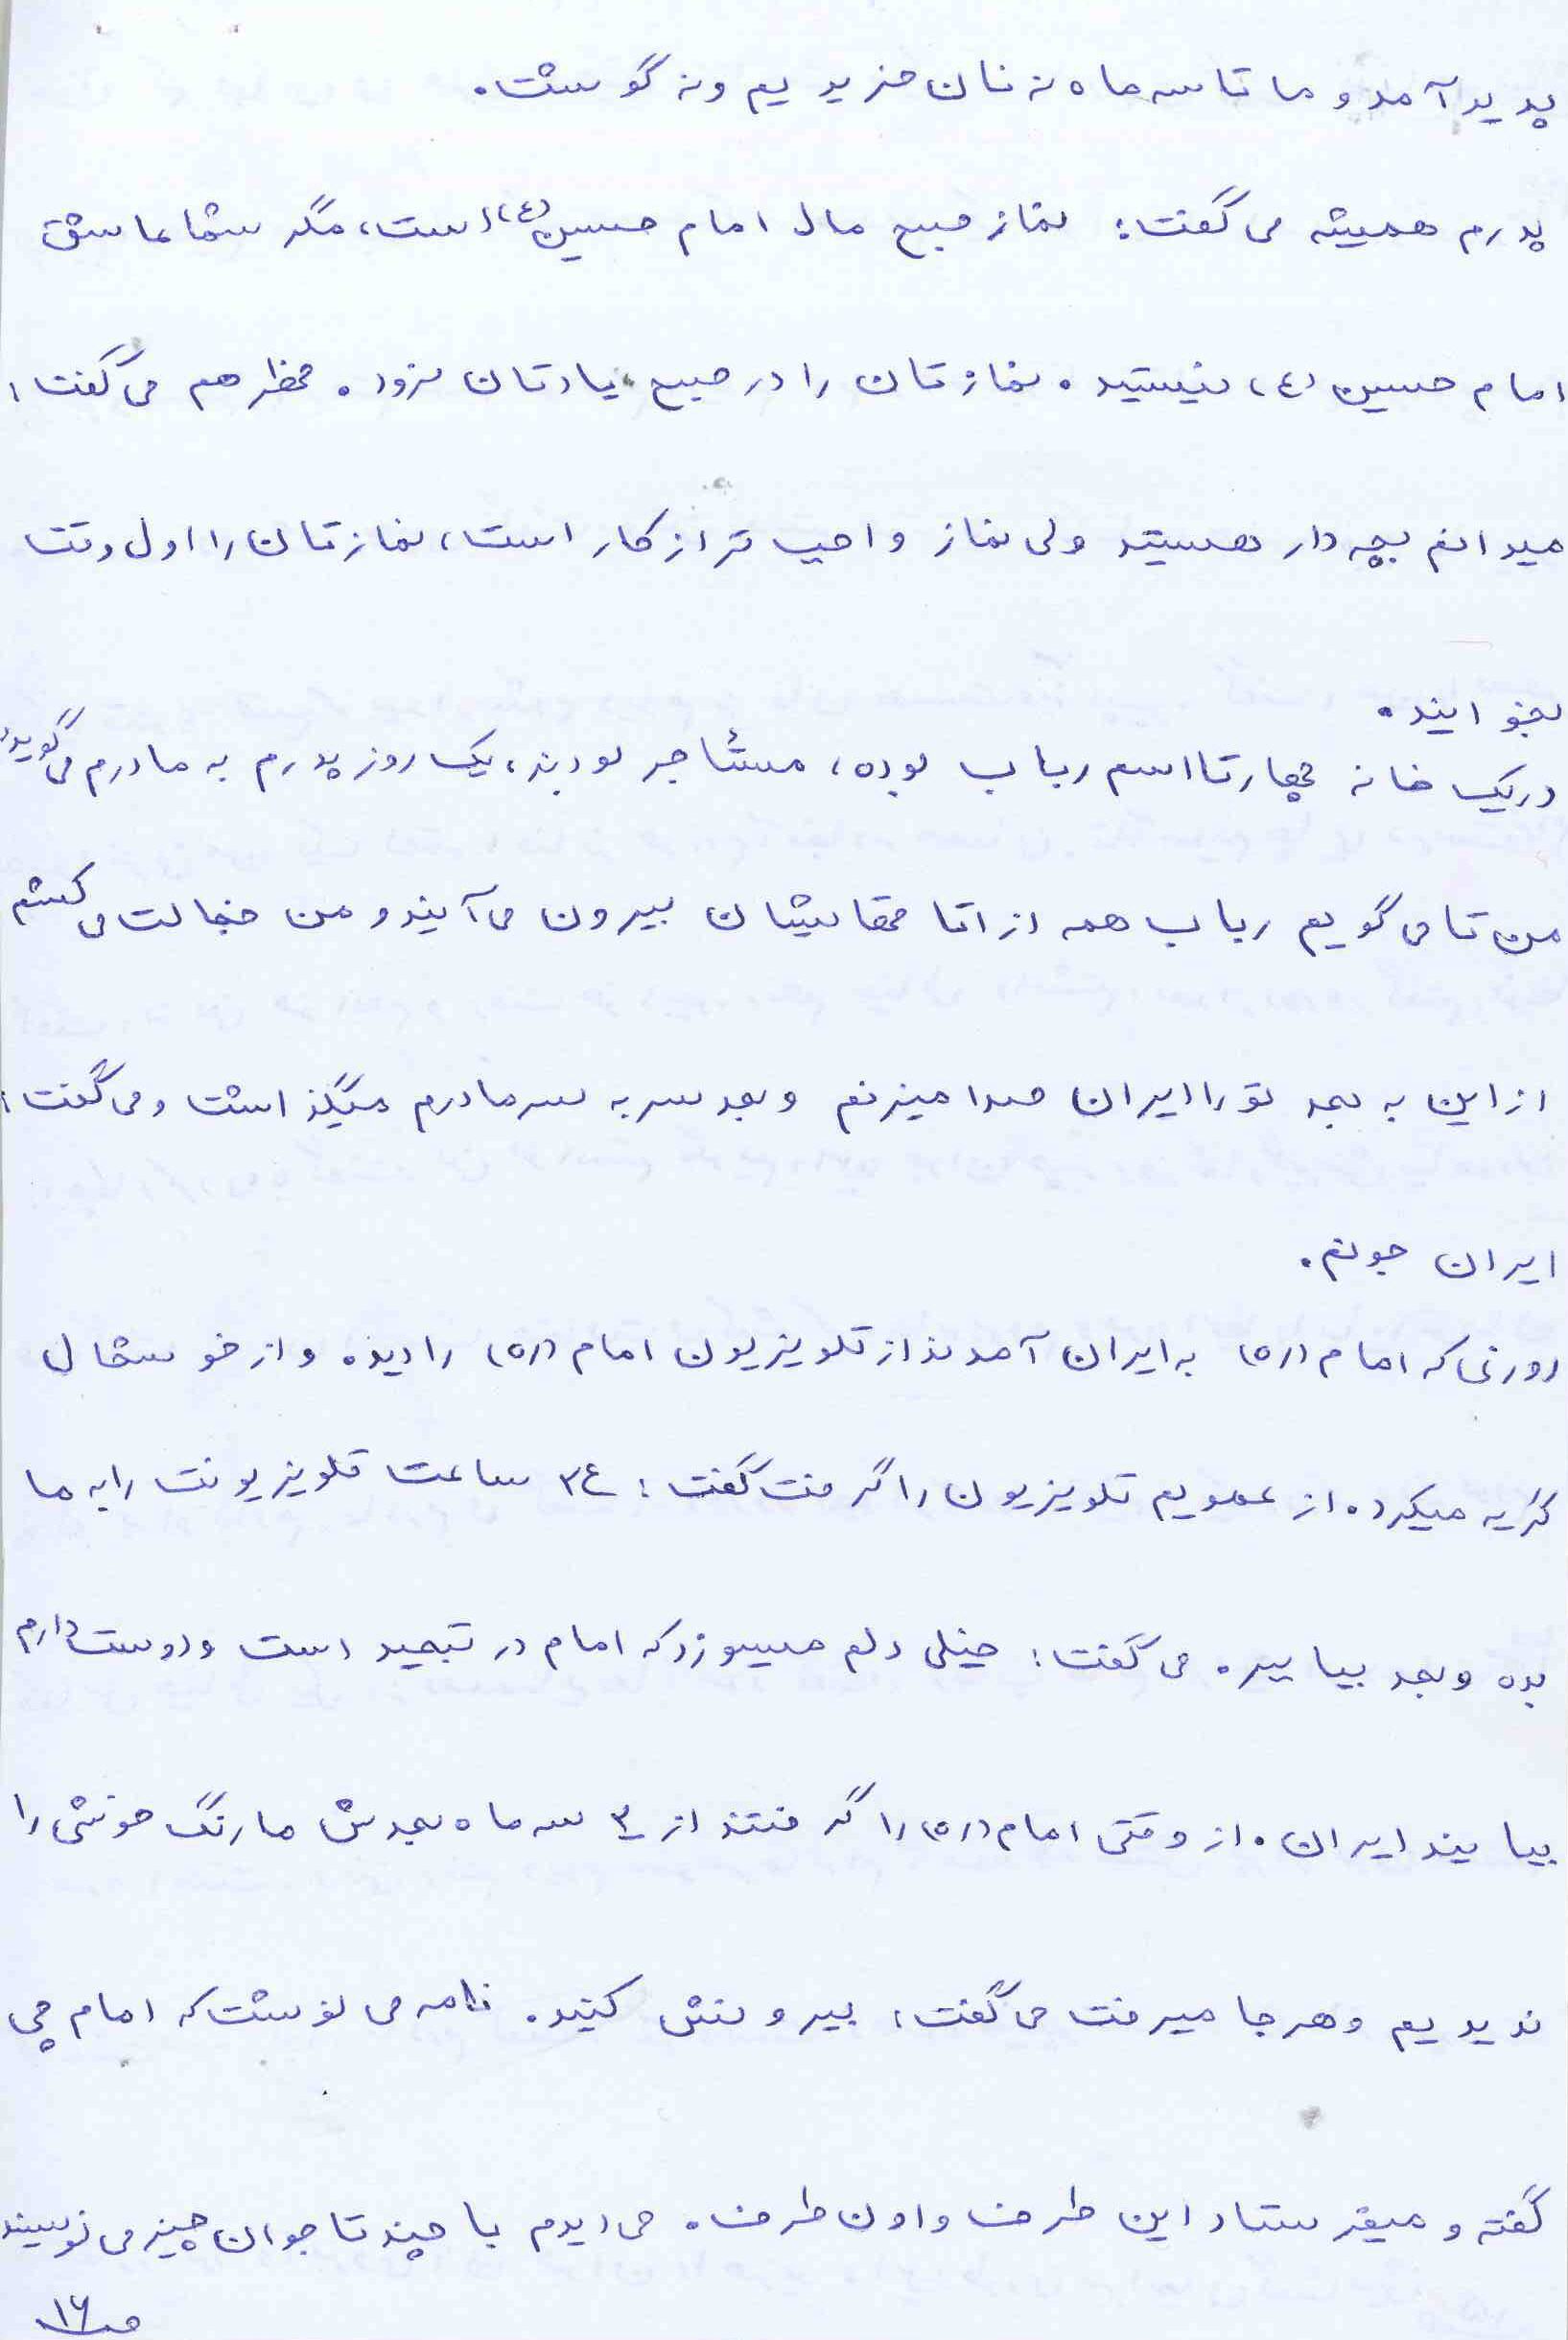 پدید آمد و ما تا سه ماه نه نان خریدیم و نه گوشت.
پدرم همیشه می گفت: نماز صبح مال امام حسین(ع) است، مگر شما عاشق
امام حسین (ع) نیستید. نمازتان را در صبح یادتان نرود. ظهر هم می گفت:
میدانم بچه دار هستید ولی نماز واجب تر از کار است، نمازتان را اول وقت
بخوانید.
در یک خانه چهارتا اسم رباب بوده، مستأجر بودند، یک روز پدرم به مادرم می گوید:
من تا می گویم رباب همه از اتاقهایشان بیرون می آیند و من خجالت می کشم
از این به بعد تو را ایران صدا میزنم و بعد سر به سر مادرم میگذاشت و می گفت:
ایران جونم.
روزی که امام (ره) به ایران آمدند از تلویزیون امام (ره) را دیده و از خوشحالی
گریه میکرد. از عمویم تلویزیون را گرفت گفت: ۲۴ ساعت تلویزیونت را به ما
بده و بعد بیا ببر. می گفت: خیلی دلم میسوزد که امام در تبعید است و دوست دارم
بیایند ایران. از وقتی امام (ره) را گرفتند از ۳ سه ماه بعدش ما رنگ خوشی را
ندیدیم و هر جا میرفت می گفت: بیرونش کنید. نامه می نوشت که امام چی
گفته و میفرستاد این طرف و اون طرف. می دیدم با چند تا جوان چیز می نویسند
ص۱۶